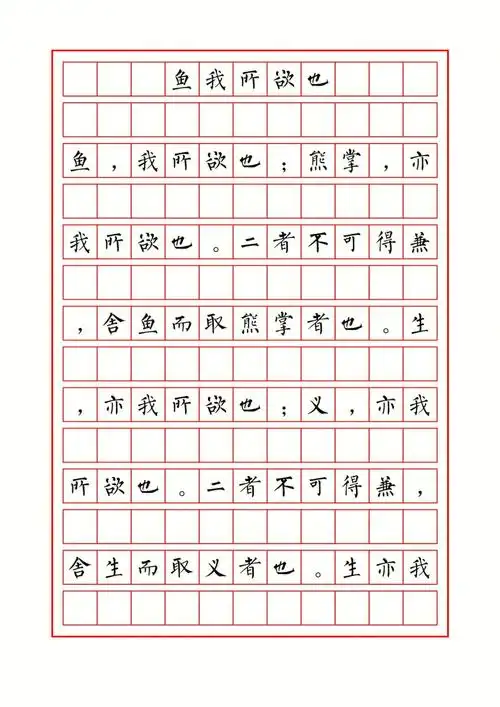 鱼我所欲也
鱼，我所欲也；熊掌，亦
我所欲也。二者不可得兼
，舍鱼而取熊掌者也。生
，亦我所欲也；义，亦我
所欲也。二者不可得兼，
舍生而取义者也。生亦我